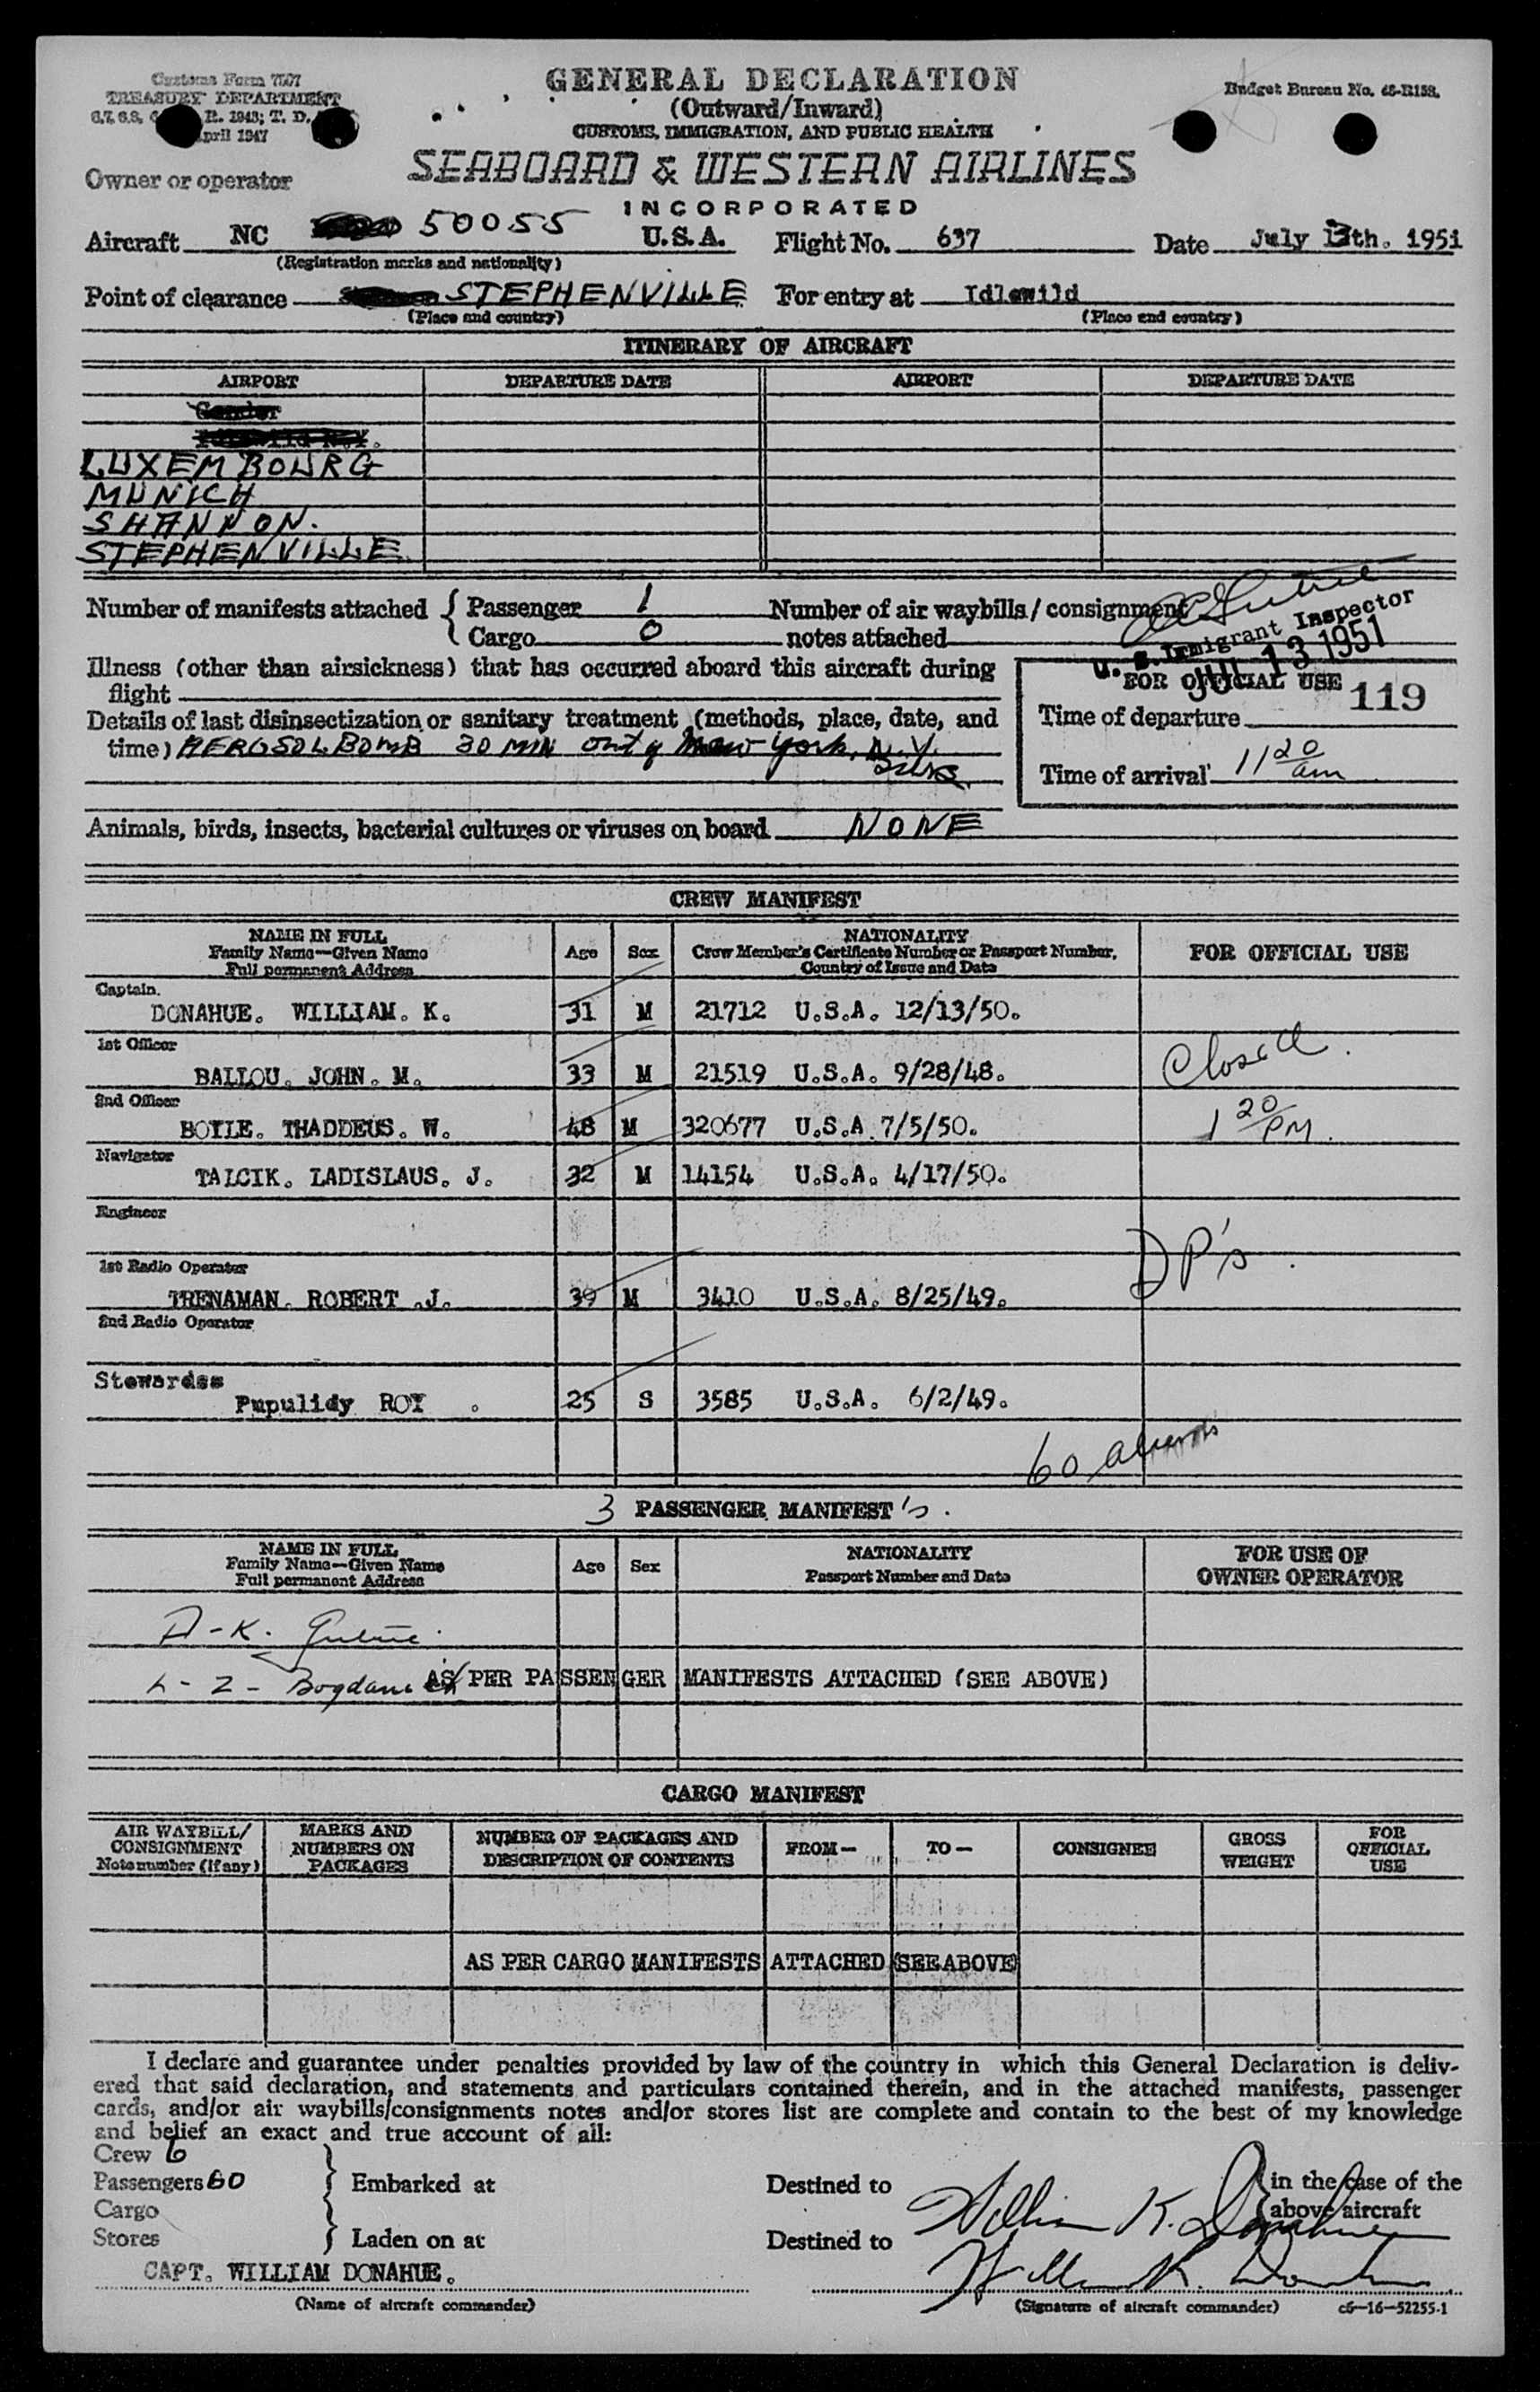 Customs Form 7507
TREASURY DEPARTMENT
R. 1943; T. D.
April 1947
GENERAL DECLARATION
(Outward/Inward)
CUSTOMS, IMMIGRATION, AND PUBLIC HEALTH
Budget Bureau No. 48-R158.
Owner or operator
SEABOARD & WESTERN AIRLINES
INCORPORATED
Aircraft NC 50055 U.S.A. Flight No. 637 Date July 13th. 1951
(Registration marks and nationality)
Point of clearance STEPHENVILLE For entry at Idlewild
(Place and country) (Place and country)
ITINERARY OF AIRCRAFT
AIRPORT DEPARTURE DATE AIRPORT DEPARTURE DATE
Gander
LUXEMBOURG
MUNICH
SHANNON.
STEPHENVILLE
Number of manifests attached { Passenger 1 Number of air waybills / consignment
Cargo 0 notes attached
U. S. Immigrant Inspector
JUL 13 1951
Illness (other than airsickness) that has occurred aboard this aircraft during
flight
FOR OFFICIAL USE 119
Details of last disinsectization or sanitary treatment (methods, place, date, and
time) AEROSOL BOMB 30 MIN out of New York, N.Y.
Time of departure
Time of arrival 11 20 am
Animals, birds, insects, bacterial cultures or viruses on board NONE
CREW MANIFEST
NAME IN FULL
Family Name—Given Name
Full permanent Address
Age Sex
NATIONALITY
Crew Member's Certificate Number or Passport Number,
Country of Issue and Date
FOR OFFICIAL USE
Captain.
DONAHUE. WILLIAM. K. 31 M 21712 U.S.A. 12/13/50.
1st Officer
BALLOU. JOHN. M. 33 M 21519 U.S.A. 9/28/48.
Closed.
2nd Officer
BOYLE. THADDEUS. W. 48 M 320677 U.S.A. 7/5/50.
1 20 PM.
Navigator
TALCIK. LADISLAUS. J. 32 M 14154 U.S.A. 4/17/50.
Engineer
DP's.
1st Radio Operator
TRENAMAN. ROBERT .J. 39 M 3410 U.S.A. 8/25/49.
2nd Radio Operator
Stewardss
Pupulidy ROY . 25 S 3585 U.S.A. 6/2/49.
60 aliens
3 PASSENGER MANIFEST's.
NAME IN FULL
Family Name—Given Name
Full permanent Address
Age Sex
NATIONALITY
Passport Number and Date
FOR USE OF
OWNER OPERATOR
A-K. Guthrie.
L-Z- AS PER PASSENGER MANIFESTS ATTACHED (SEE ABOVE)
CARGO MANIFEST
AIR WAYBILL/
CONSIGNMENT
Note number (if any)
MARKS AND
NUMBERS ON
PACKAGES
NUMBER OF PACKAGES AND
DESCRIPTION OF CONTENTS
FROM— TO— CONSIGNEE
GROSS
WEIGHT
FOR
OFFICIAL
USE
AS PER CARGO MANIFESTS ATTACHED (SEE ABOVE
I declare and guarantee under penalties provided by law of the country in which this General Declaration is deliv-
ered that said declaration, and statements and particulars contained therein, and in the attached manifests, passenger
cards, and/or air waybills/consignments notes and/or stores list are complete and contain to the best of my knowledge
and belief an exact and true account of all:
Crew 6
Passengers 60 } Embarked at Destined to } in the case of the
Cargo above aircraft
Stores } Laden on at Destined to
William K. Donahue
CAPT. WILLIAM DONAHUE. William K. Donahue
(Name of aircraft commander) (Signature of aircraft commander) c6—16—52255-1